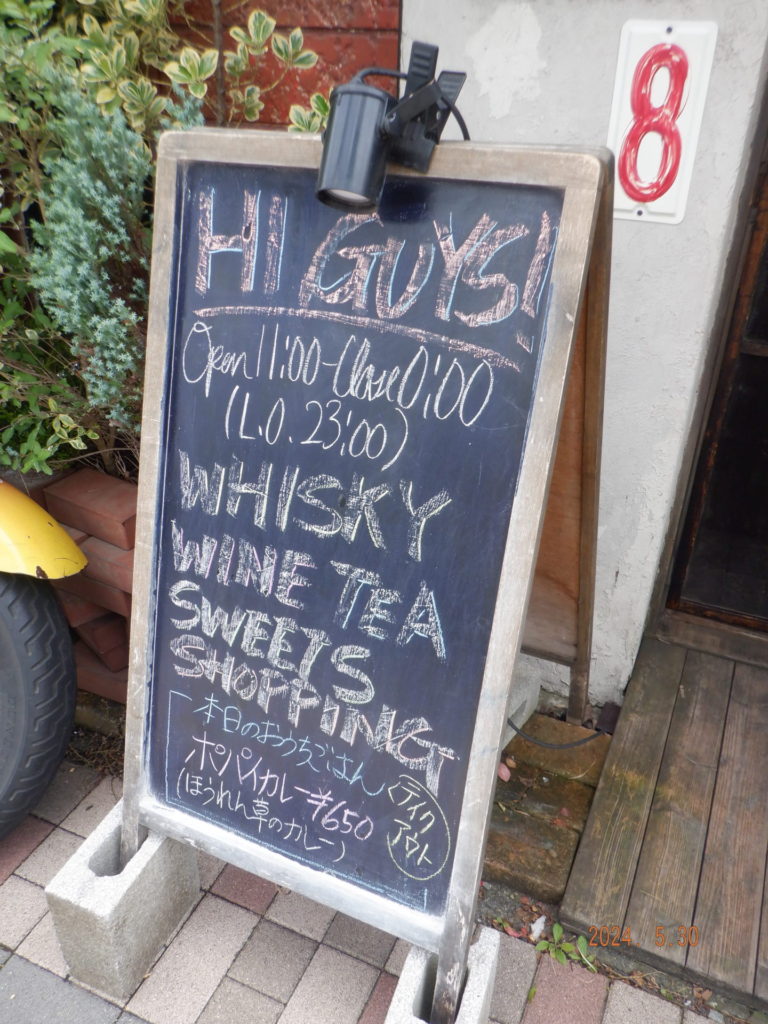 8
HI GUYS!
Open 11:00-Close 0:00
(L.O. 23:00)
WHISKY
WINE TEA
SWEETS
SHOPPING
本日のおうちごはん
ポパイカレー ¥650
(ほうれん草のカレー)
テイク
アウト
2024. 5.30